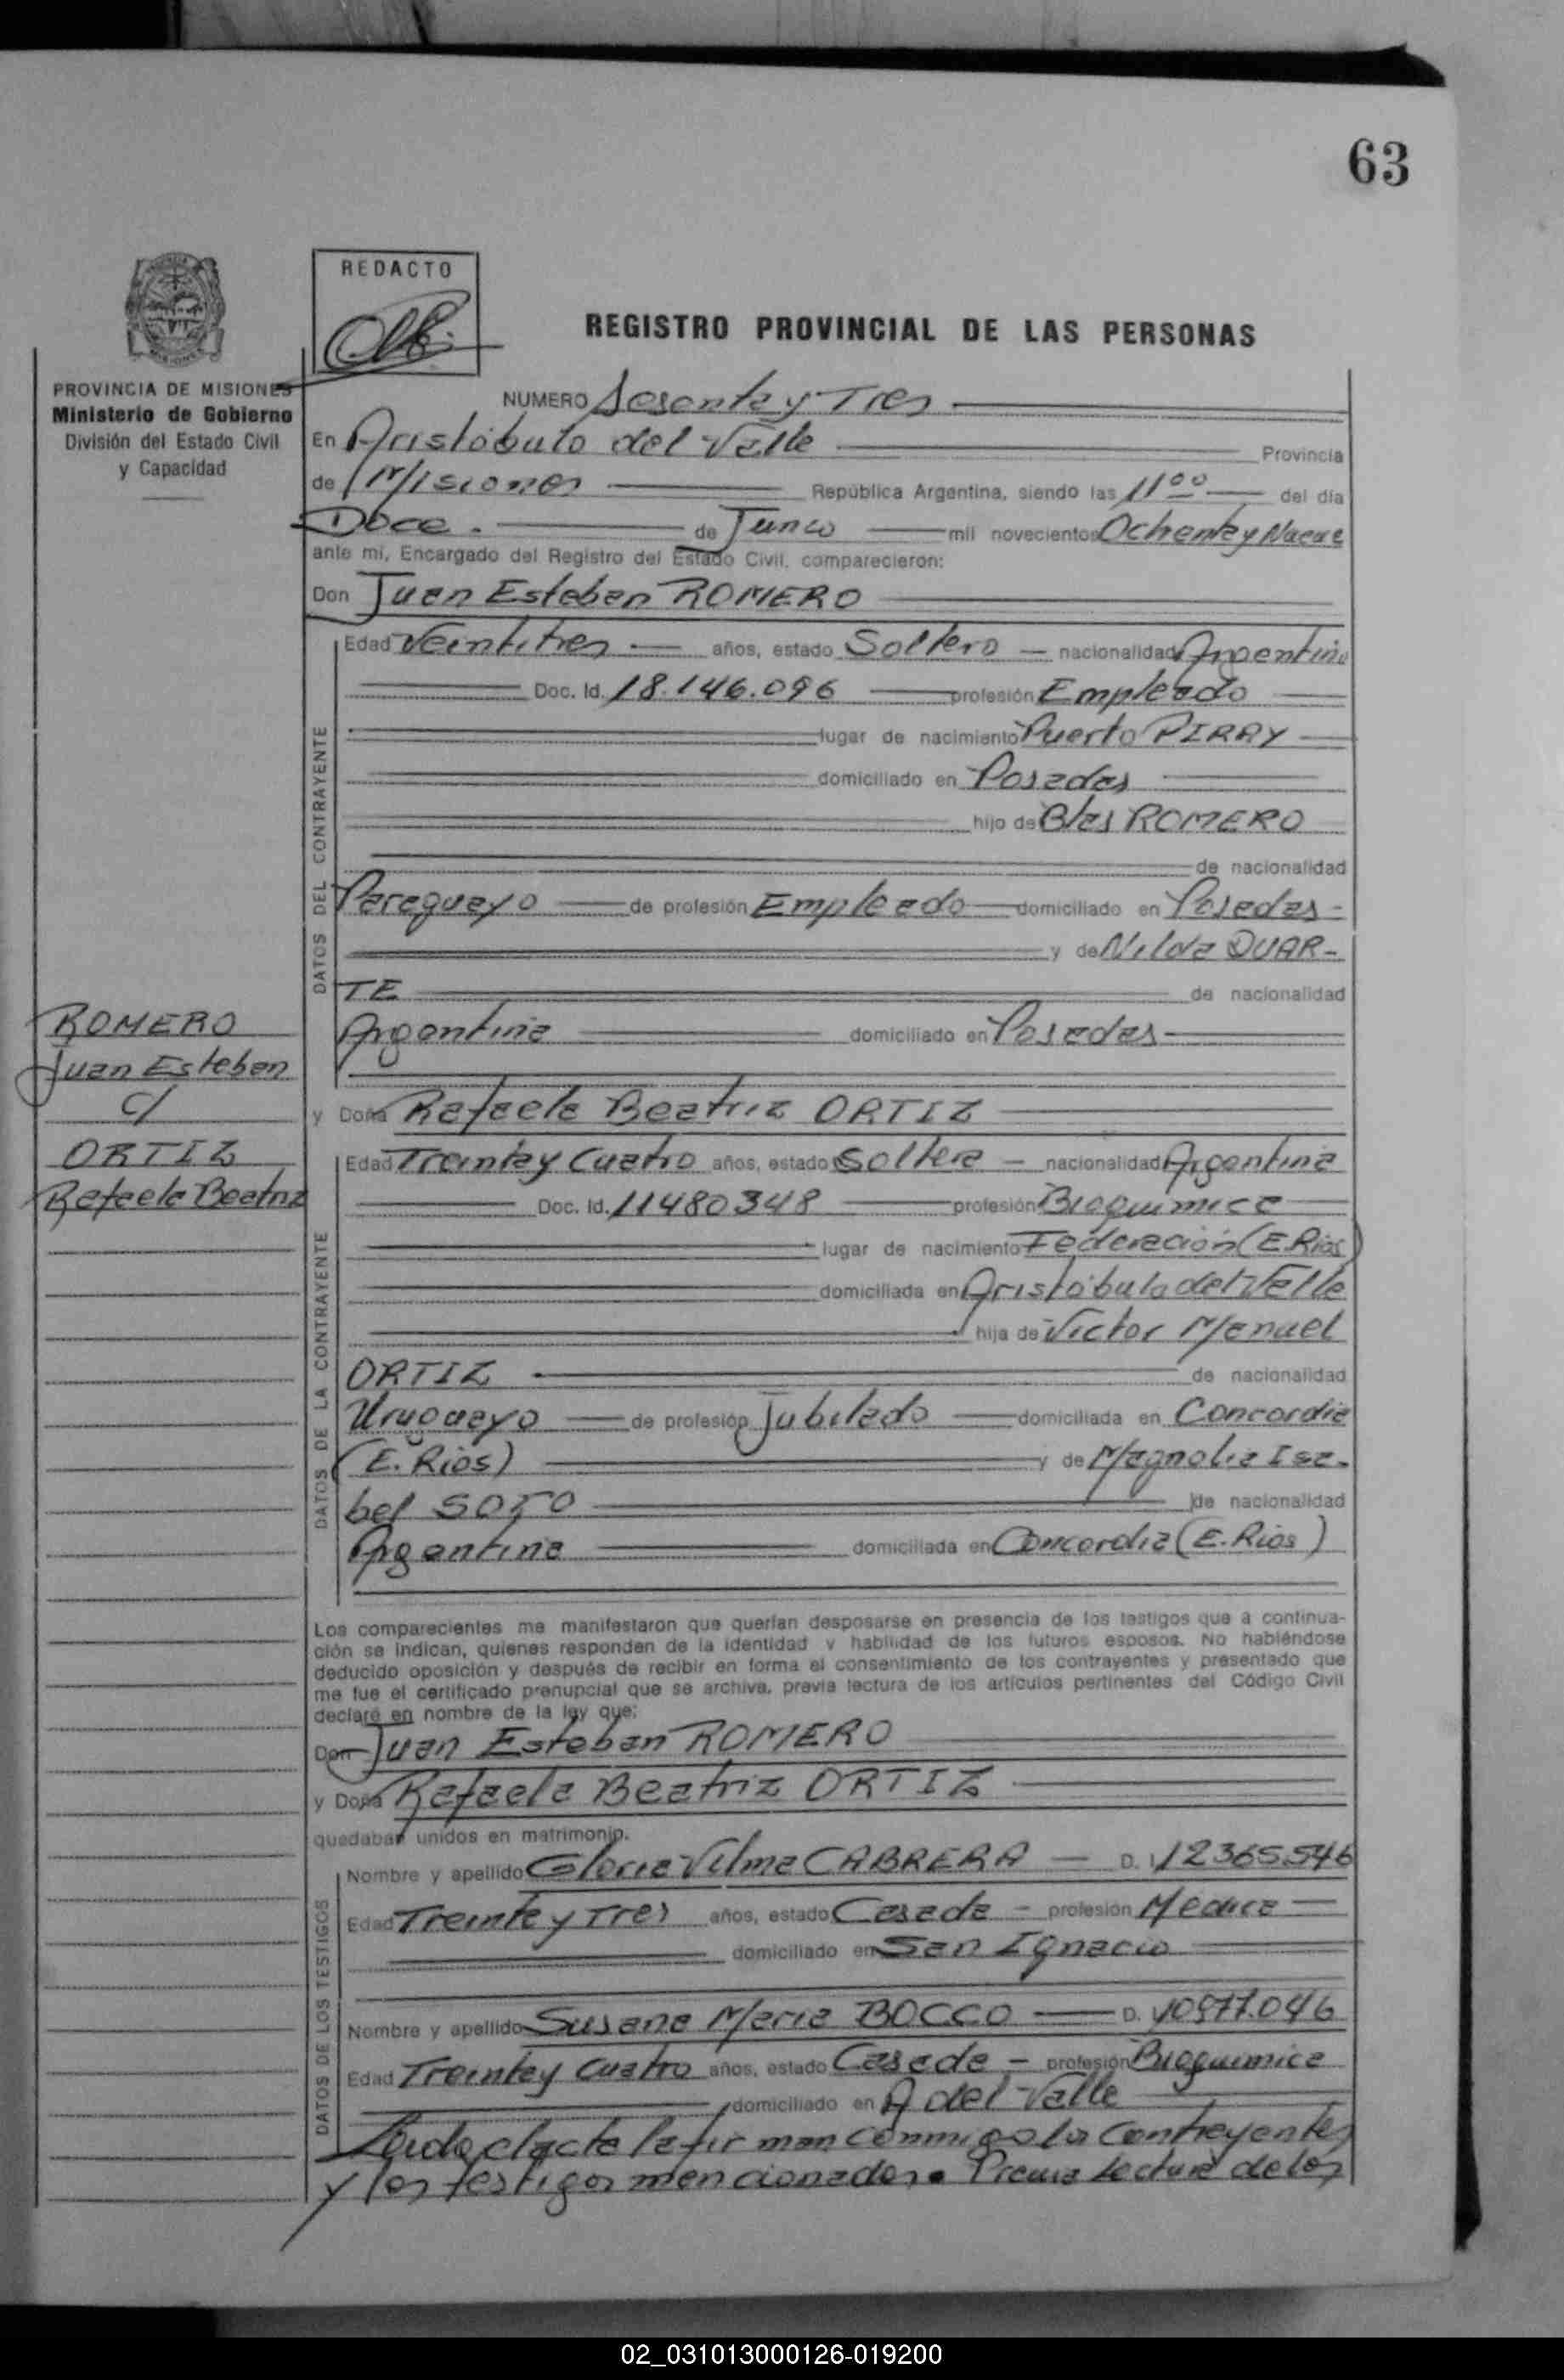 63
REDACTO
REGISTRO PROVINCIAL DE LAS PERSONAS
PROVINCIA DE MISIONES
Ministerio de Gobierno
División del Estado Civil
y Capacidad
NUMERO Sesenta y Tres
En Aristóbulo del Valle Provincia
de Misiones República Argentina, siendo las 11 00 del día
Doce. de Junio mil novecientos Ochenta y Nueve
ante mí, Encargado del Registro del Estado Civil, comparecieron:
Don Juan Esteban ROMERO
DATOS DEL CONTRAYENTE
Edad Veintitres años, estado Soltero nacionalidad Argentino
Doc. Id. 18.146.096 profesión Empleado
lugar de nacimiento Puerto PIRAY
domiciliado en Posadas
hijo de Blas ROMERO
de nacionalidad
Paraguayo de profesión Empleado domiciliado en Posadas
y de Nilda DUAR-
TE de nacionalidad
Argentina domiciliado en Posadas
ROMERO
Juan Esteban
c/
ORTIZ
Rafaela Beatriz
y Doña Rafaela Beatriz ORTIZ
DATOS DE LA CONTRAYENTE
Edad Treinta y Cuatro años, estado Soltera nacionalidad Argentina
Doc. Id. 11480348 profesión Bioquimica
lugar de nacimiento Federación (E. Rios)
domiciliada en Aristóbulo del Valle
hija de Victor Manuel
ORTIZ de nacionalidad
Uruguayo de profesión Jubilado domiciliada en Concordia
(E. Rios) y de Magnolia Isa-
bel SOTO de nacionalidad
Argentina domiciliada en Concordia (E. Rios)
Los comparecientes me manifestaron que querían desposarse en presencia de los testigos que a continua-
ción se indican, quienes responden de la identidad y habilidad de los futuros esposos. No habiéndose
deducido oposición y después de recibir en forma el consentimiento de los contrayentes y presentado que
me fue el certificado prenupcial que se archiva, previa lectura de los artículos pertinentes del Código Civil
declaré en nombre de la ley que:
Don Juan Esteban ROMERO
y Doña Rafaela Beatriz ORTIZ
quedaban unidos en matrimonio.
DATOS DE LOS TESTIGOS
Nombre y apellido Gloria Vilma CABRERA D. I 12365546
Edad Treinta y Tres años, estado Casada profesión Médica
domiciliado en San Ignacio
Nombre y apellido Susana Maria BOCCO D. 10977.046
Edad Treinta y cuatro años, estado Casada profesión Bioquimica
domiciliado en A del Valle
Leida el acta la firman conmigo los Contrayentes
y los testigos mencionados. Previa lectura de los
02_031013000126-019200